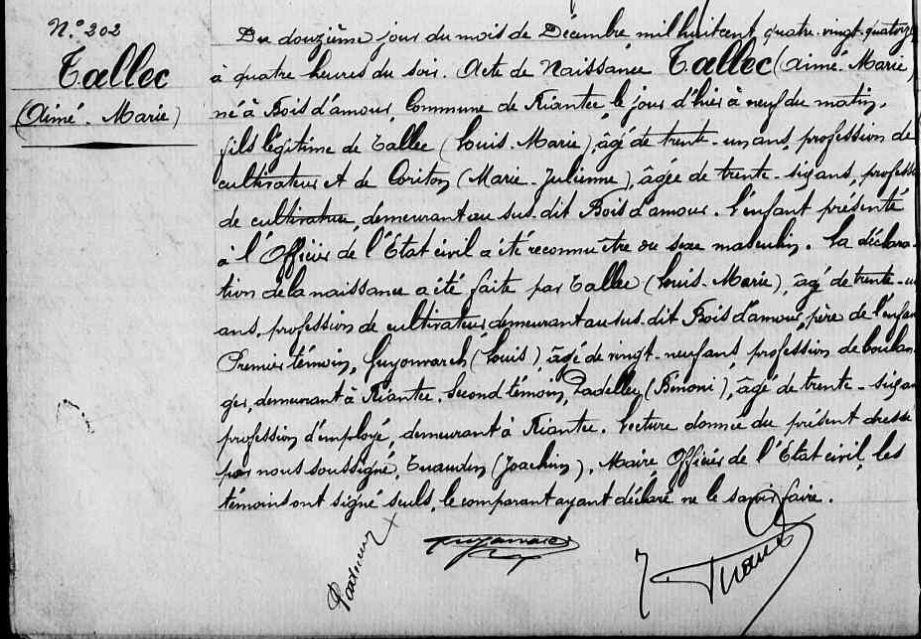 N.° 202
Tallec
(Aimé-Marie)
Du douzième jour du mois de Décembre mil huit cent quatre-vingt-quatorze
à quatre heures du soir. Acte de Naissance Tallec (Aimé-Marie)
né à Bois d'amour, Commune de Riantec le jour d'hier à neuf du matin,
fils légitime de Tallec (Louis-Marie), âgé de trente-un ans, profession de
cultivateur et de Coriton (Marie-Julienne), âgée de trente-six ans, profess
de cultivatrice, demeurant au sus-dit Bois d'amour. L'enfant présenté
à l'Officier de l'État civil a été reconnu être du sexe masculin. La déclara
tion de la naissance a été faite par Tallec (Louis-Marie), âgé de trente-u
ans, profession de cultivateur demeurant au sus-dit Bois d'amour, père de l'enfan
Premier témoin, Guyonvarch (Louis), âgé de vingt-neuf ans, profession de boulan
ger, demeurant à Riantec. Second témoin, Padellec (Bénoni), âgé de trente-six an
profession d'employé, demeurant à Riantec. Lecture donnée du présent dressé
par nous soussigné, Tuaudin (Joachim), Maire, Officier de l'État civil, les
témoins ont signé seuls, le comparant ayant déclaré ne le savoir faire.